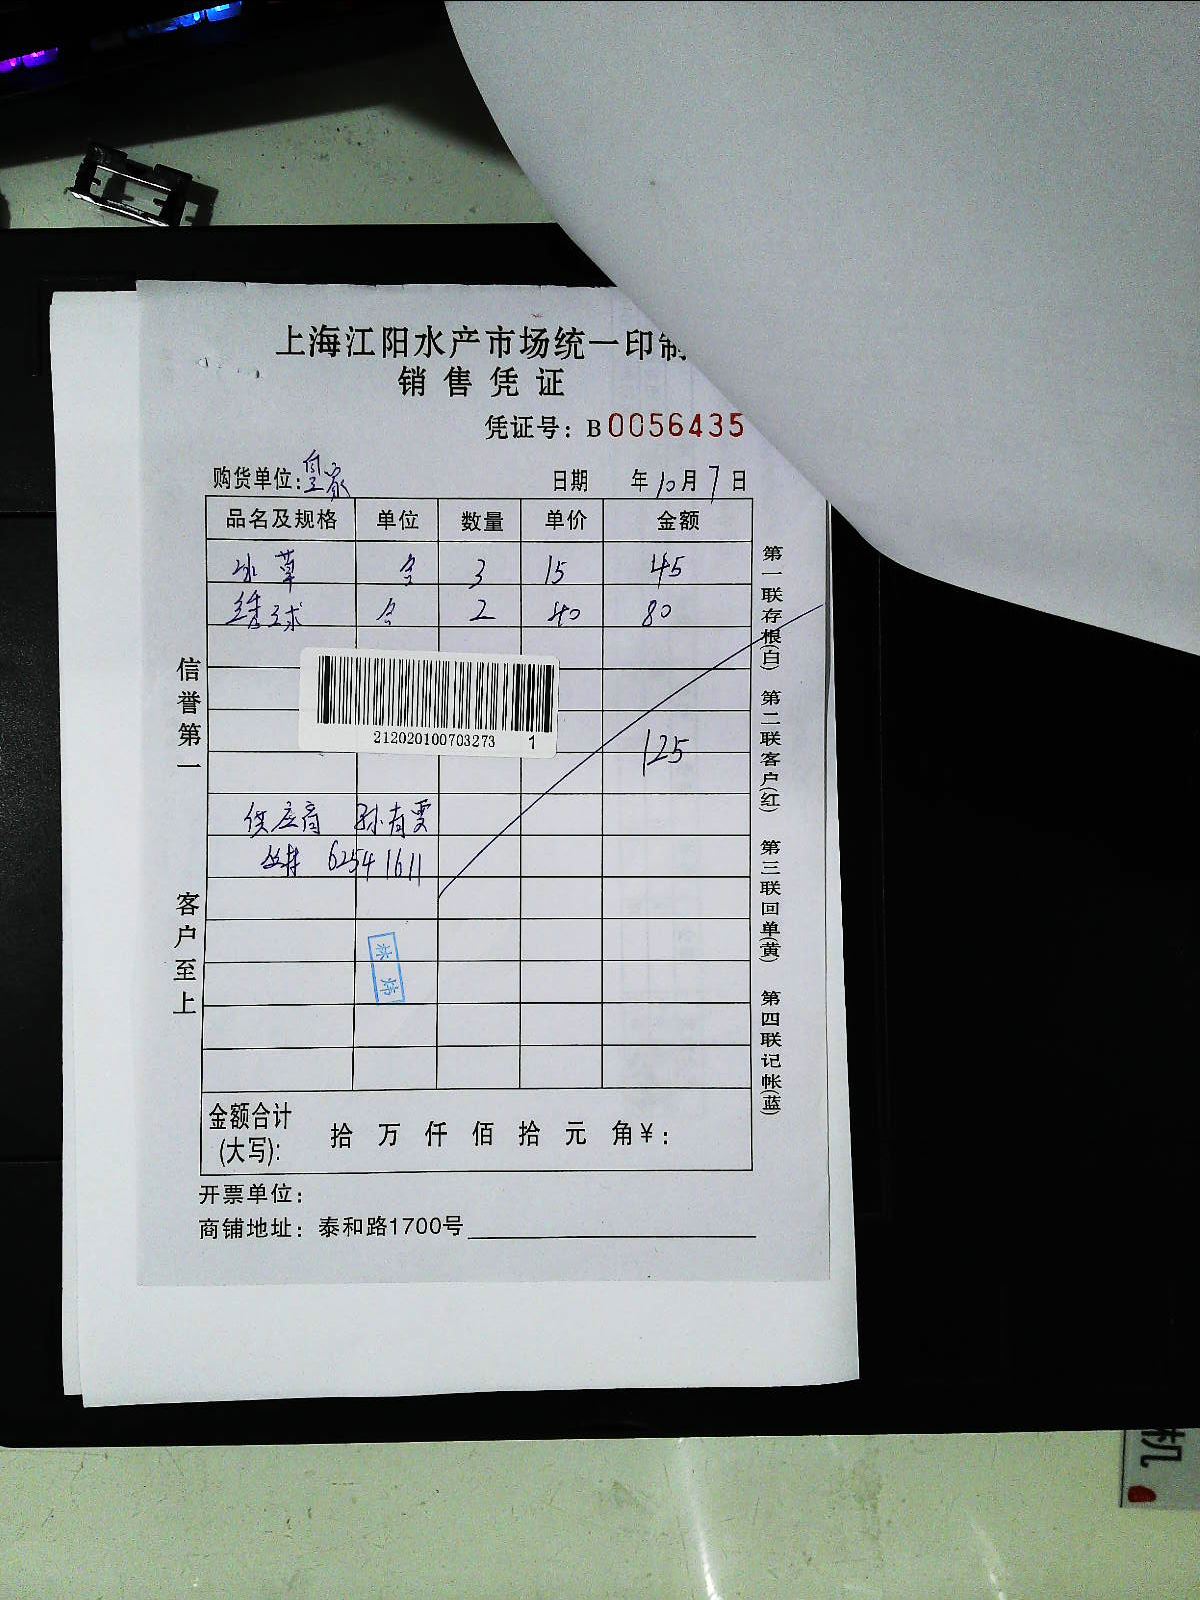 上海江阳水产市场统一印制
销售凭证
凭证号：B0056435
购货单位：皇家 日期 年10月7日
品名及规格 单位 数量 单价 金额
水草 3 15 45
绣球 2 40 80
212020100703273 1
125
供应商 孙有雯
62541611
金额合计(大写)： 拾 万 仟 佰 拾 元 角￥：
开票单位：
商铺地址：泰和路1700号
信誉第一
客户至上
第一联存根(白) 第二联客户(红) 第三联回单(黄) 第四联记帐(蓝)
机